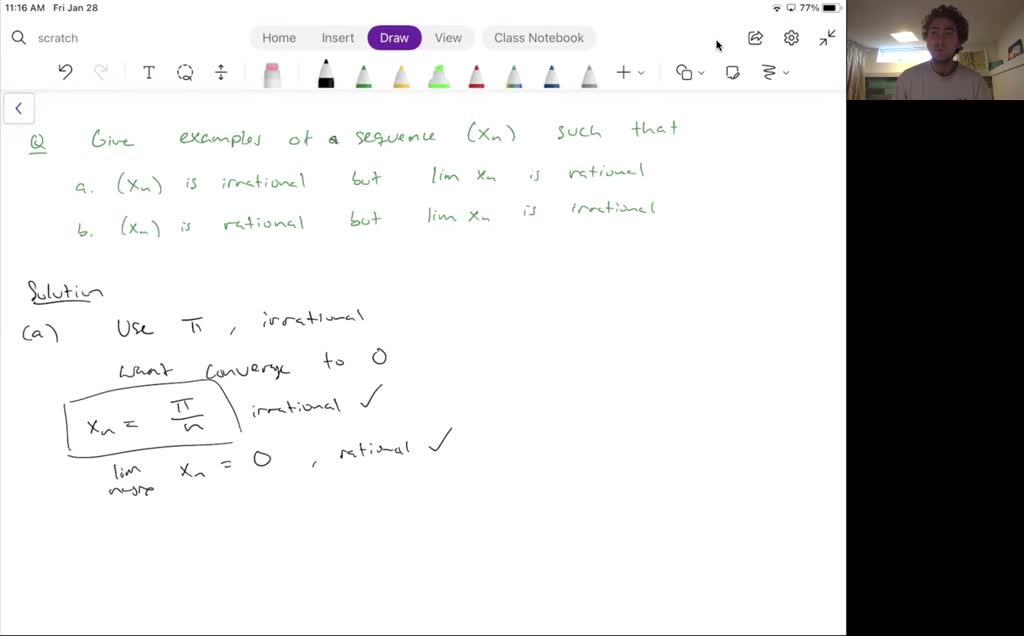 11:16 AM Fri Jan 28 77%
scratch Home Insert Draw View Class Notebook
T
Q Give examples of a sequence (xₙ) such that
a. (xₙ) is irrational but lim xₙ is rational
b. (xₙ) is rational but lim xₙ is irrational
Solution
(a) Use π, irrational
want converge to 0
xₙ = π/n irrational ✓
lim xₙ = 0, rational ✓
n→∞